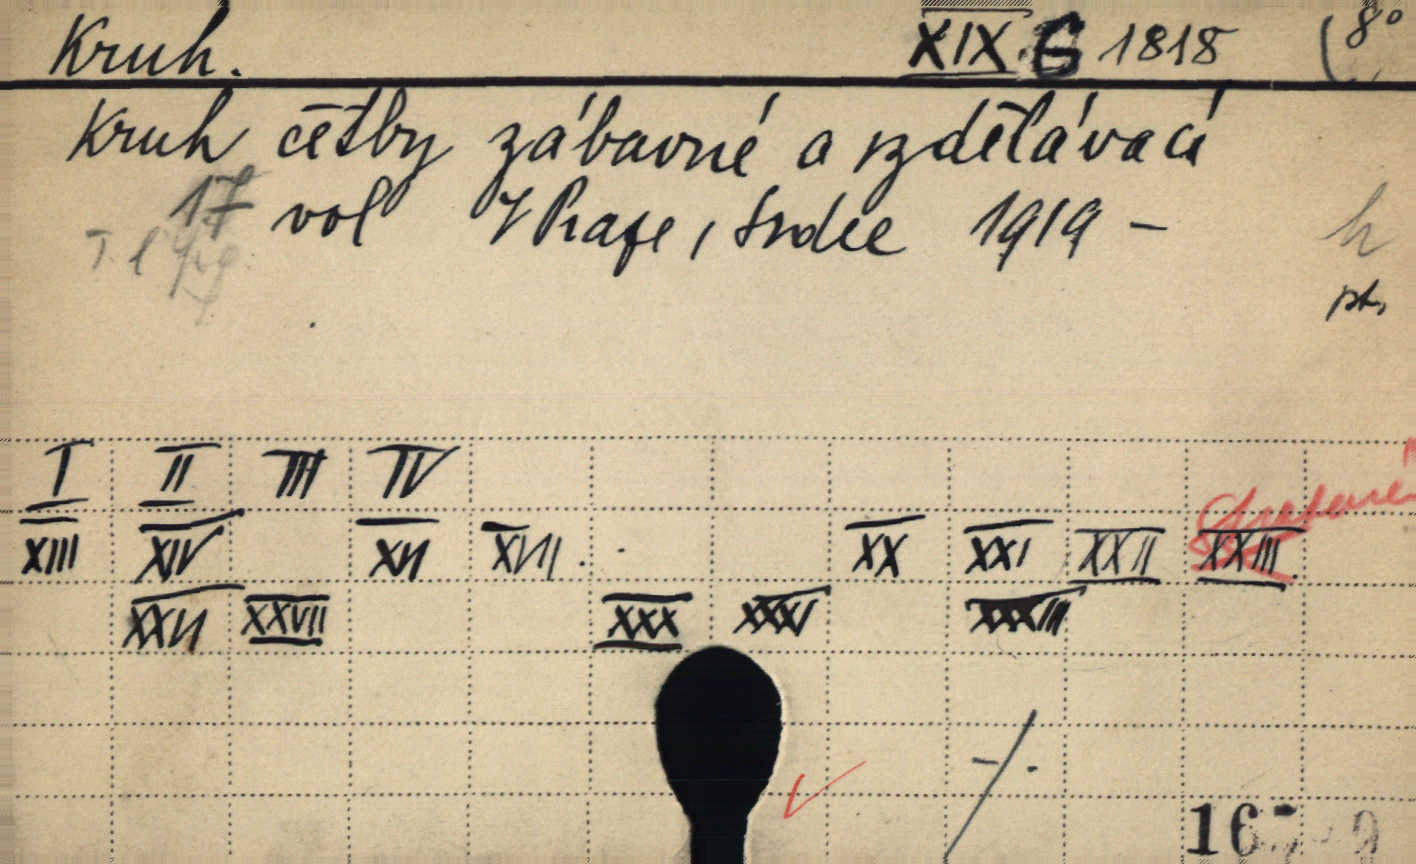 Kruh. XIX G 1818 (8°
Kruh četby zábavné a vzdělávací
17 vol V Praze, Srdce 1919 –
h
pt.
I II III IV
XIII XIV XVI XVII . XX XXI XXII XXIII
XXVI XXVII XXX XXXI XXXIII